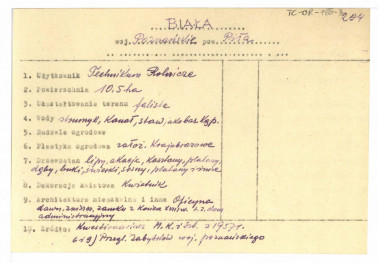 BIAŁA
woj. Poznańskie pow. Piła
1. Użytkownik Technikum Rolnicze
2. Powierzchnia 10.5 ha
3. Ukształtowanie terenu faliste
4. Wody strumyk, kanał, staw,
5. Budowle ogrodowe
6. Plastyka ogrodowa założ. Krajobrazowe
7. Drzewostan lipy, akacje, kasztany, platany,
dęby, buki, świerki, sosny, platany i inne
8. Dekoracja kwiatowa Kwietnik
9. Architektura mieszkalna i inne Oficyna
dawn. zamku z końca XVIII w. i dom
administracyjny
10. Źródło: Kwestionariusz M.K. i Sz. z 1957 r.
Przegl. zabytków woj. poznańskiego